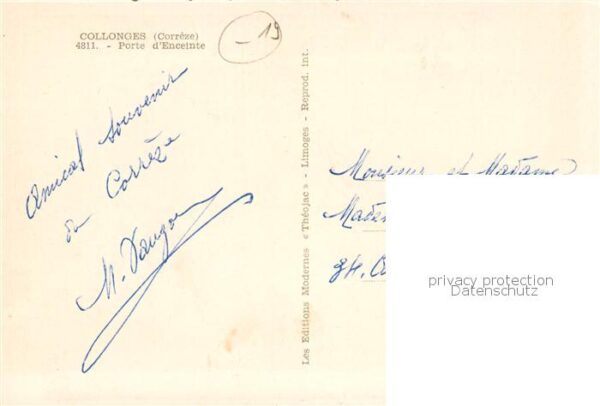 COLLONGES (Corrèze)
4811. - Porte d'Enceinte
- 19
Amical souvenir
de Corrèze
M.
Les Editions Modernes « Théojac » - Limoges - Reprod. int.
Monsieur et Madame
34.
privacy protection
Datenschutz